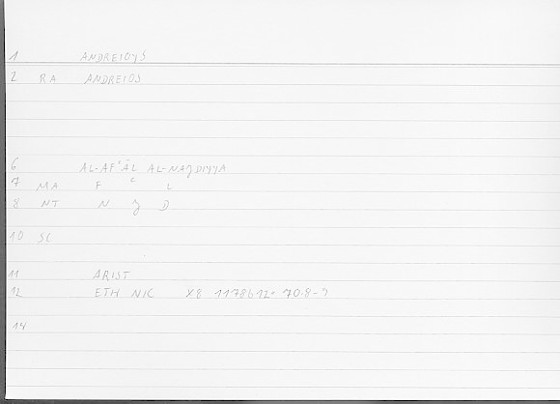 1 ANDREIOYS
2 RA ANDREIOS
6 AL-AFʿĀL AL-NAǦDIYYA
7 MA F ʿ L
8 NT N Ǧ D
10 SC
11 ARIST
12 ETH NIC X8 1178b12 70.8-9
14